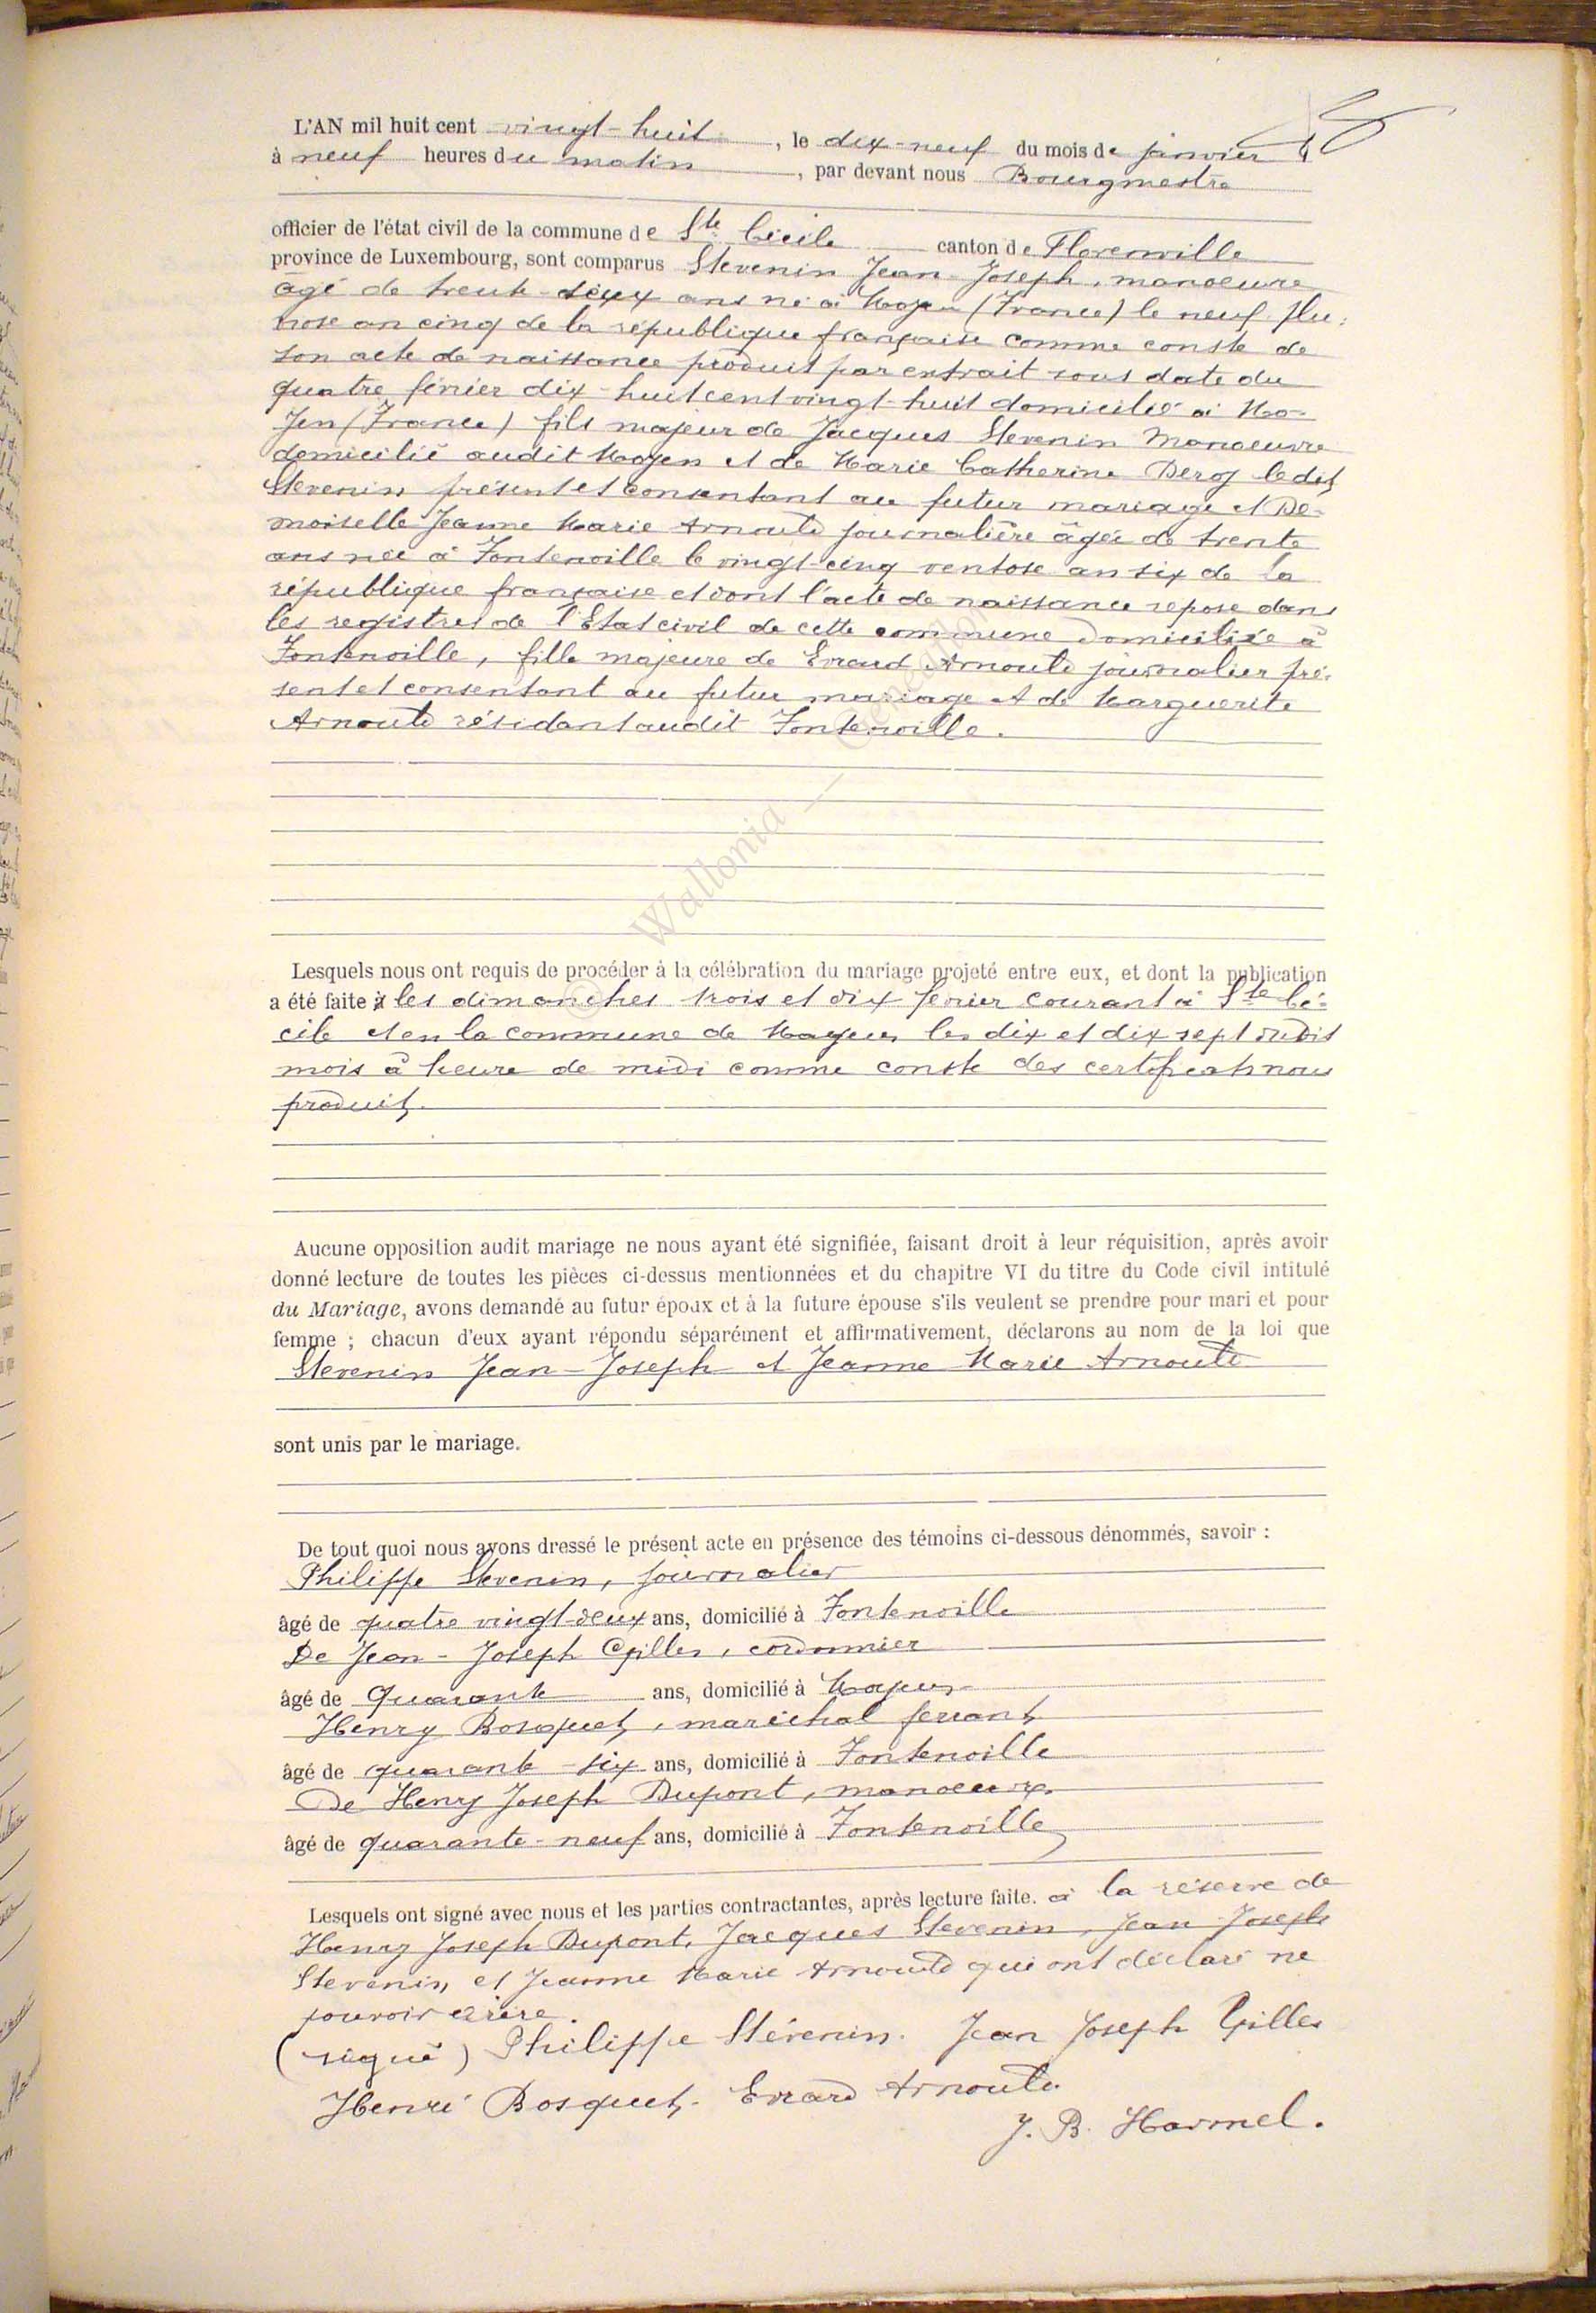 L'AN mil huit cent vingt-huit, le dix-neuf du mois de janvier
à neuf heures du matin, par devant nous Bourgmestre
officier de l'état civil de la commune de Ste Cécile canton de Florenville
province de Luxembourg, sont comparus Stevenin Jean-Joseph, manoeuvre
âgé de trente-deux ans né à Moyen (France) le neuf plu-
viose an cinq de la république française comme conste de
son acte de naissance produit par extrait sous date du
quatre février dix-huit cent vingt-huit domicilié à Mo-
yen (France) fils majeur de Jacques Stevenin Manoeuvre
domicilié audit Moyen et de Marie Catherine Deroy ledit
Stevenin présent et consentant au futur mariage et De-
moiselle Jeanne Marie Arnould journalière âgée de trente
ans née à Fontenoille le vingt-cinq ventose an six de la
république française et dont l'acte de naissance repose dans
les registres de l'Etat civil de cette commune domiciliée à
Fontenoille, fille majeure de Errard Arnould journalier pré-
sent et consentant au futur mariage et de Marguerite
Arnould résidant audit Fontenoille.
© Wallonia —
Lesquels nous ont requis de procéder à la célébration du mariage projeté entre eux, et dont la publication
a été faite à les dimanches trois et dix fevrier courant à Ste Cé-
cile et en la commune de Moyen les dix et dix sept dudit
mois à heure de midi comme conste des certificats nous
produit.
Aucune opposition audit mariage ne nous ayant été signifiée, faisant droit à leur réquisition, après avoir
donné lecture de toutes les pièces ci-dessus mentionnées et du chapitre VI du titre du Code civil intitulé
du Mariage, avons demandé au futur époux et à la future épouse s'ils veulent se prendre pour mari et pour
femme ; chacun d'eux ayant répondu séparément et affirmativement, déclarons au nom de la loi que
Stevenin Jean-Joseph et Jeanne Marie Arnould
sont unis par le mariage.
De tout quoi nous avons dressé le présent acte en présence des témoins ci-dessous dénommés, savoir :
Philippe Stevenin, journalier
âgé de quatre vingt-deux ans, domicilié à Fontenoille
De Jean-Joseph Gilles, cordonnier
âgé de Quarante ans, domicilié à Moyen
Henry Bosquet, maréchal ferrant
âgé de quarante-six ans, domicilié à Fontenoille
De Henry Joseph Dupont, manoeuvre
âgé de quarante-neuf ans, domicilié à Fontenoille
Lesquels ont signé avec nous et les parties contractantes, après lecture faite. à la réserve de
Henry Joseph Dupont, Jacques Stevenin, Jean-Joseph
Stevenin, et Jeanne Marie Arnould qui ont déclaré ne
pouvoir écrire.
(signé) Philippe Stévenin. Jean Joseph Gilles
Henri Bosquet. Errard Arnould
J. B. Harmel.